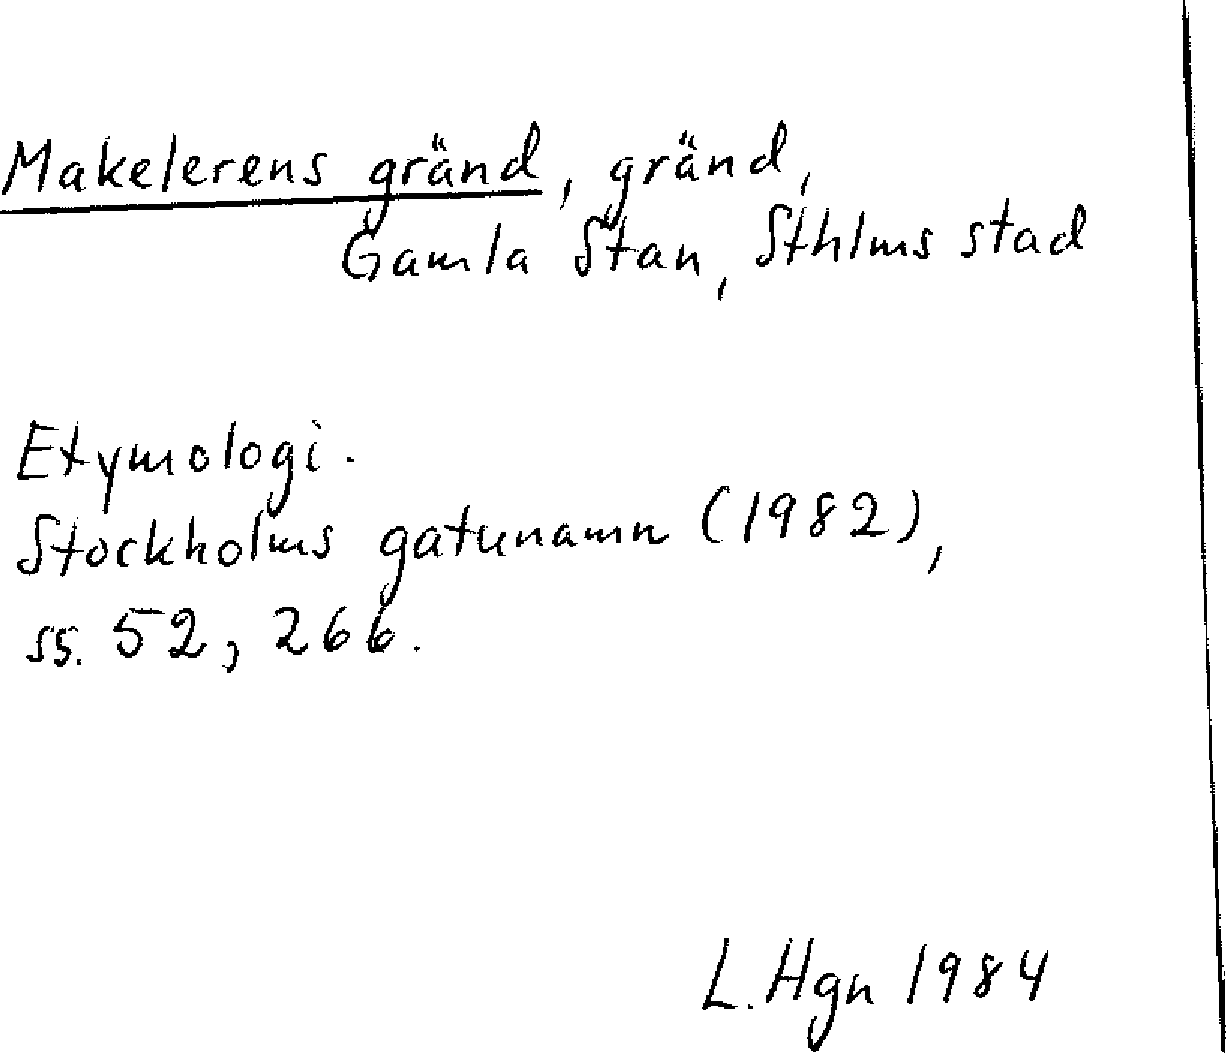 Makelerens gränd, gränd,
Gamla Stan, Sthlms stad
Etymologi.
Stockholms gatunamn (1982),
ss. 52, 266.
L. Hgn 1984